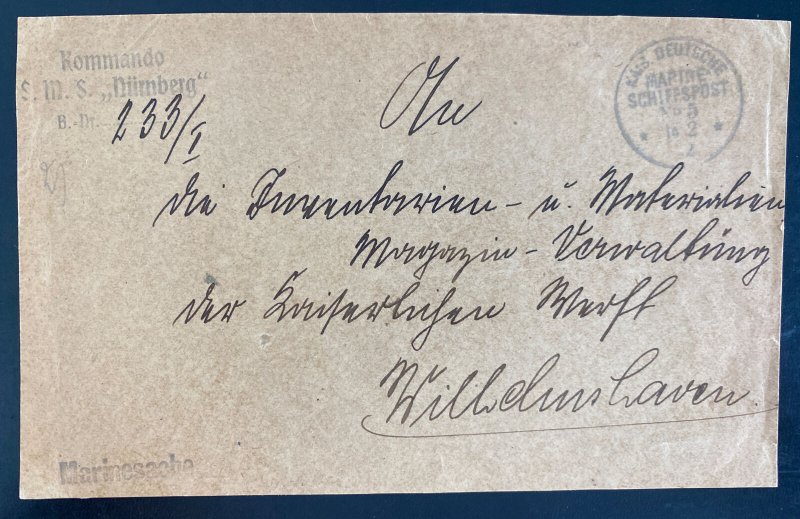 Kommando
S. M. S. „Nürnberg"
B.-Nr. 233/I
KAIS. DEUTSCHE
MARINE-
SCHIFFSPOST
An
die Inventarien- u. Materialien
Magazin-Verwaltung
der Kaiserlichen Werft
Wilhelmshaven.
Marinesache